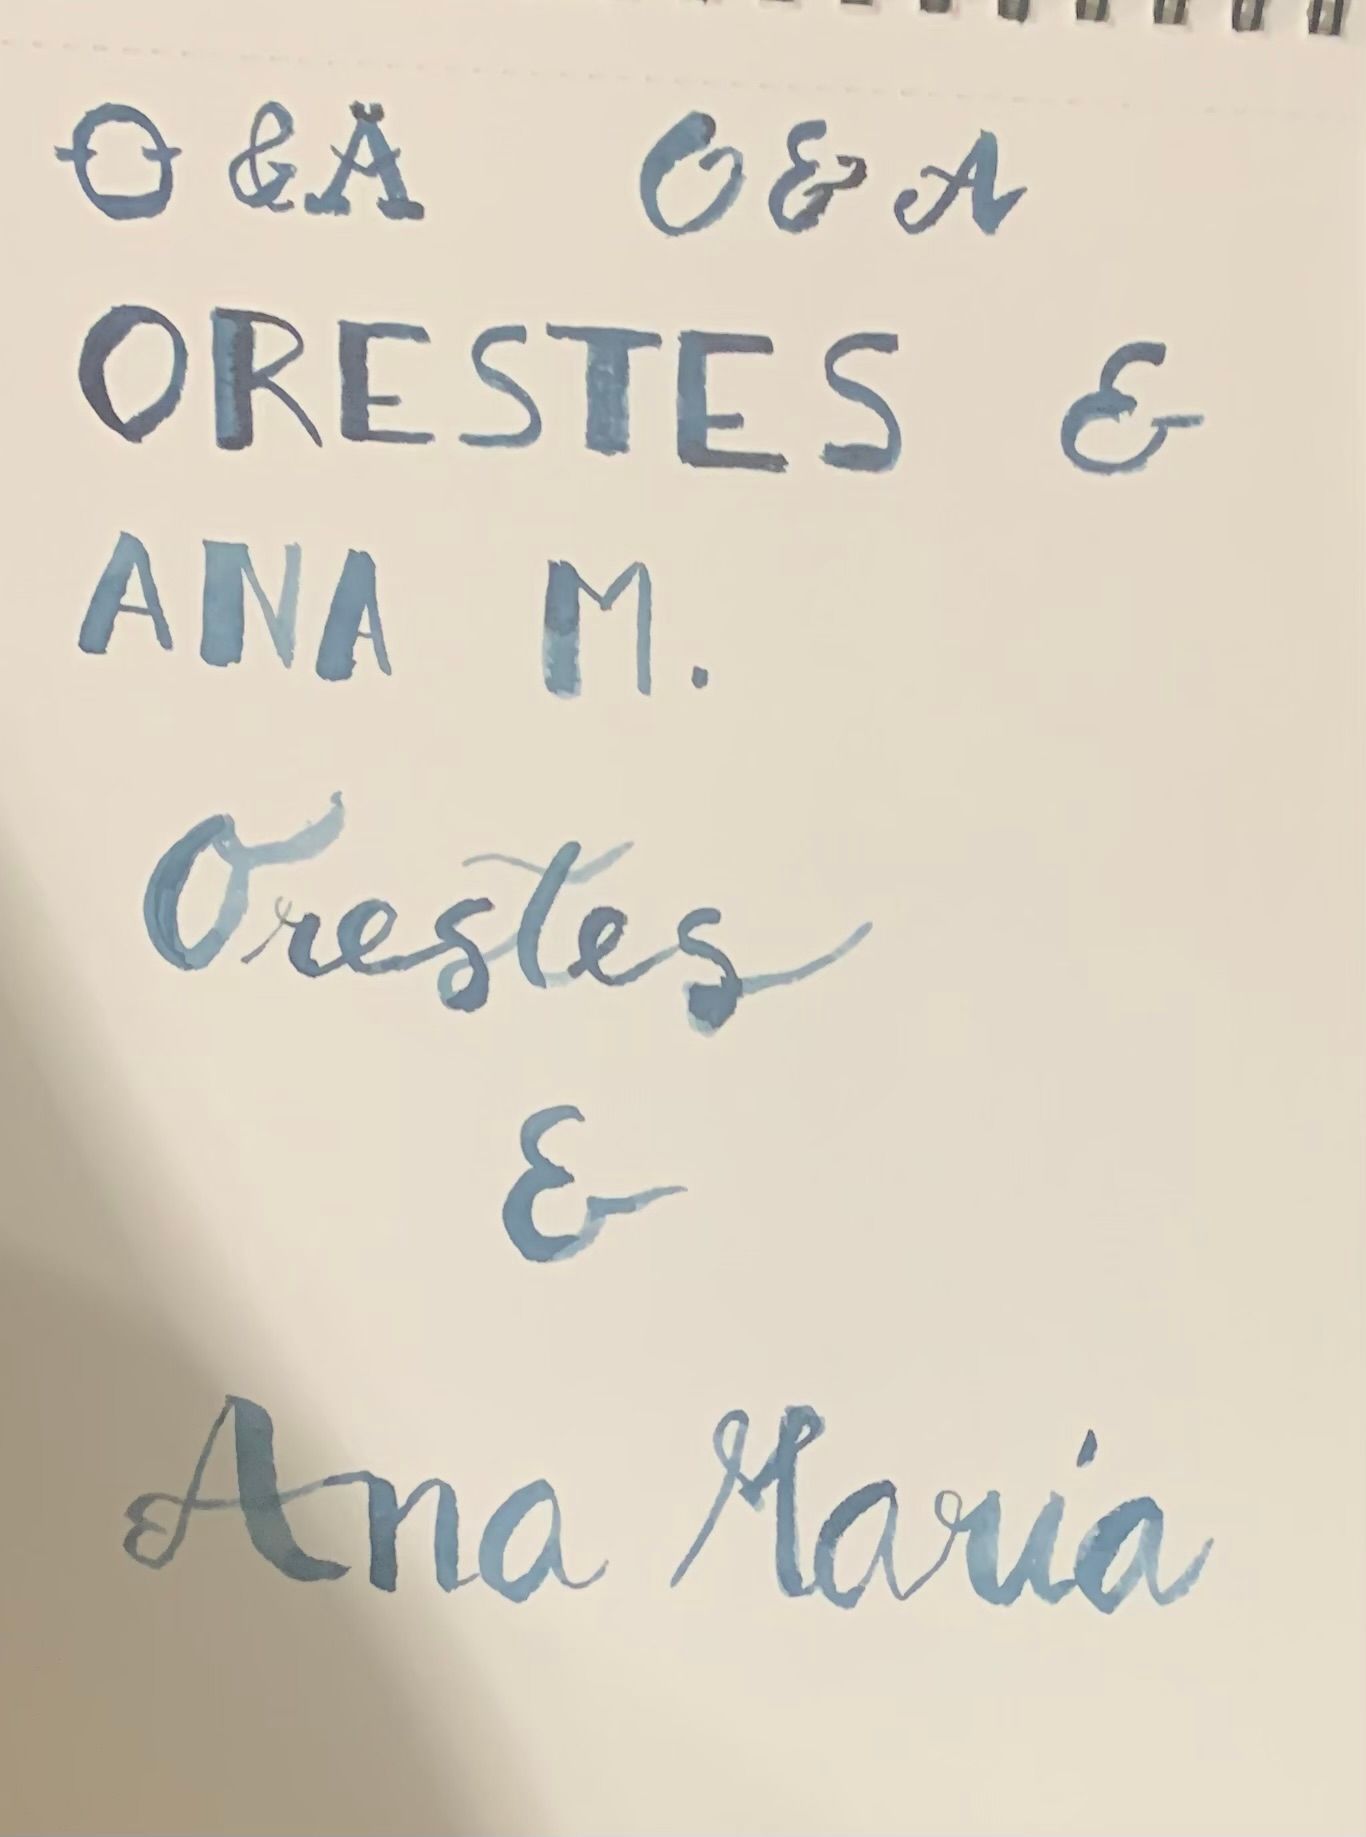 O & A O & A
ORESTES &
ANA M.
Orestes
&
Ana Maria